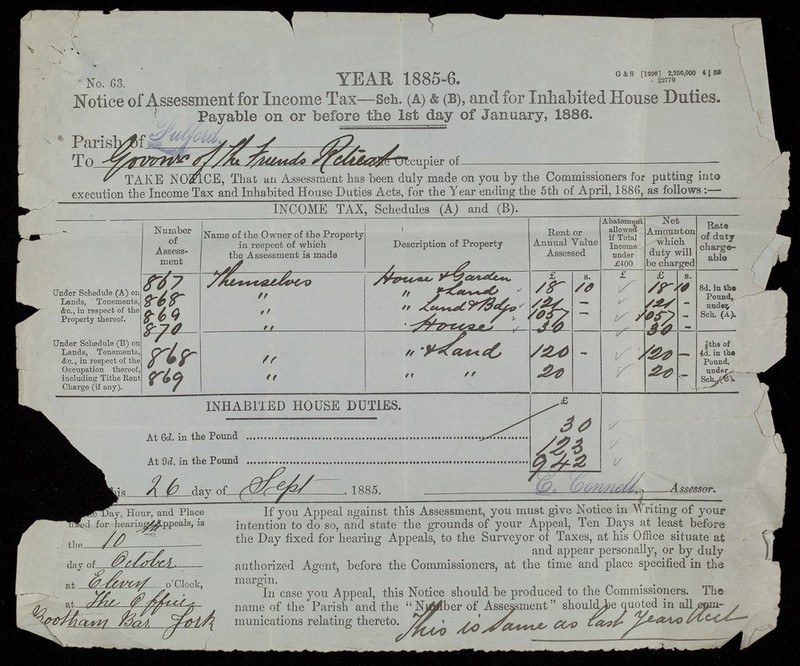 No. 63.
YEAR 1885-6.
G & S [1020] 2,250,000 4 | 85
22770
Notice of Assessment for Income Tax—Sch. (A) & (B), and for Inhabited House Duties.
Payable on or before the 1st day of January, 1886.
Parish of Fulford
To Govonr of The Friends Retreat Occupier of
TAKE NOTICE, That an Assessment has been duly made on you by the Commissioners for putting into
execution the Income Tax and Inhabited House Duties Acts, for the Year ending the 5th of April, 1886, as follows:—
INCOME TAX, Schedules (A) and (B).
Number of Assess-ment | Name of the Owner of the Property in respect of which the Assessment is made | Description of Property | Rent or Annual Value Assessed | Abatement allowed if Total Income under £400 | Net Amount on which duty will be charged | Rate of duty charge-able
£ s. £ £ s.
Under Schedule (A) on Lands, Tenements, &c., in respect of the Property thereof.
867 Themselves House & Garden 18 10 18 10
868 " " & Land 121 - 121 -
869 " " Land & Bdgs 1057 - 1057 -
870 " House 30 30 -
8d. in the Pound, under Sch. (A).
Under Schedule (B) on Lands, Tenements, &c., in respect of the Occupation thereof, including Tithe Rent Charge (if any).
868 " " & Land 120 - 120 -
869 " " " 20 20 -
ths of 4d. in the Pound, under Sch. (B).
INHABITED HOUSE DUTIES.
£
30
At 6d. in the Pound 123
At 9d. in the Pound 942
his 26 day of Sept. 1885. C. Connell, Assessor.
Day, Hour, and Place
fixed for hearing Appeals, is
the 10th
day of October
at Eleven o'Clock,
at The Office
Bootham Bar York
If you Appeal against this Assessment, you must give Notice in Writing of your
intention to do so, and state the grounds of your Appeal, Ten Days at least before
the Day fixed for hearing Appeals, to the Surveyor of Taxes, at his Office situate at
and appear personally, or by duly
authorized Agent, before the Commissioners, at the time and place specified in the
margin.
In case you Appeal, this Notice should be produced to the Commissioners. The
name of the Parish and the "Number of Assessment" should be quoted in all com-
munications relating thereto.
This is same as last Years